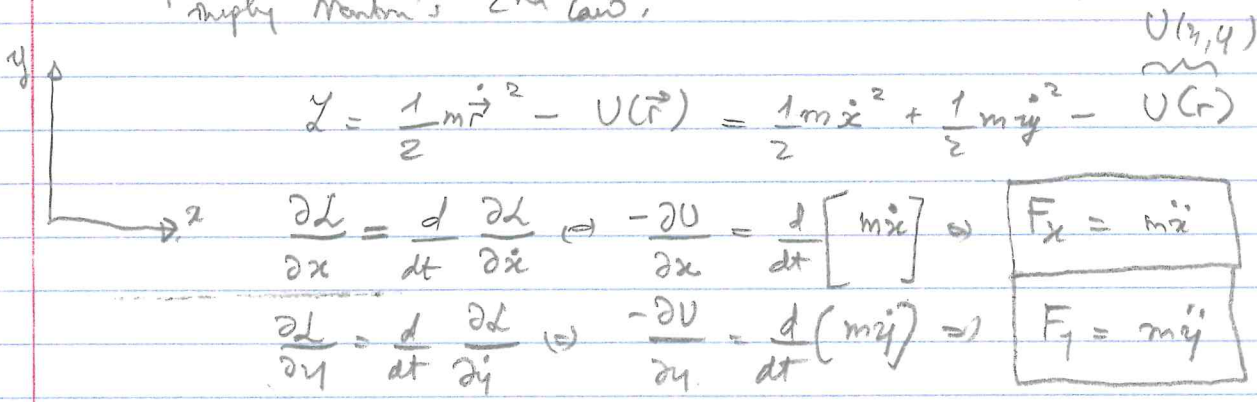 simply Newton's 2nd law.
U(x,y)
y
ℒ = 1/2 m ṙ⃗² − U(r⃗) = 1/2 m ẋ² + 1/2 m ẏ² − U(r)
x ∂ℒ/∂x = d/dt ∂ℒ/∂ẋ ⇔ −∂U/∂x = d/dt [mẋ] ⇒ Fx = mẍ
∂ℒ/∂y = d/dt ∂ℒ/∂ẏ ⇔ −∂U/∂y = d/dt (mẏ) ⇒ Fy = mÿ